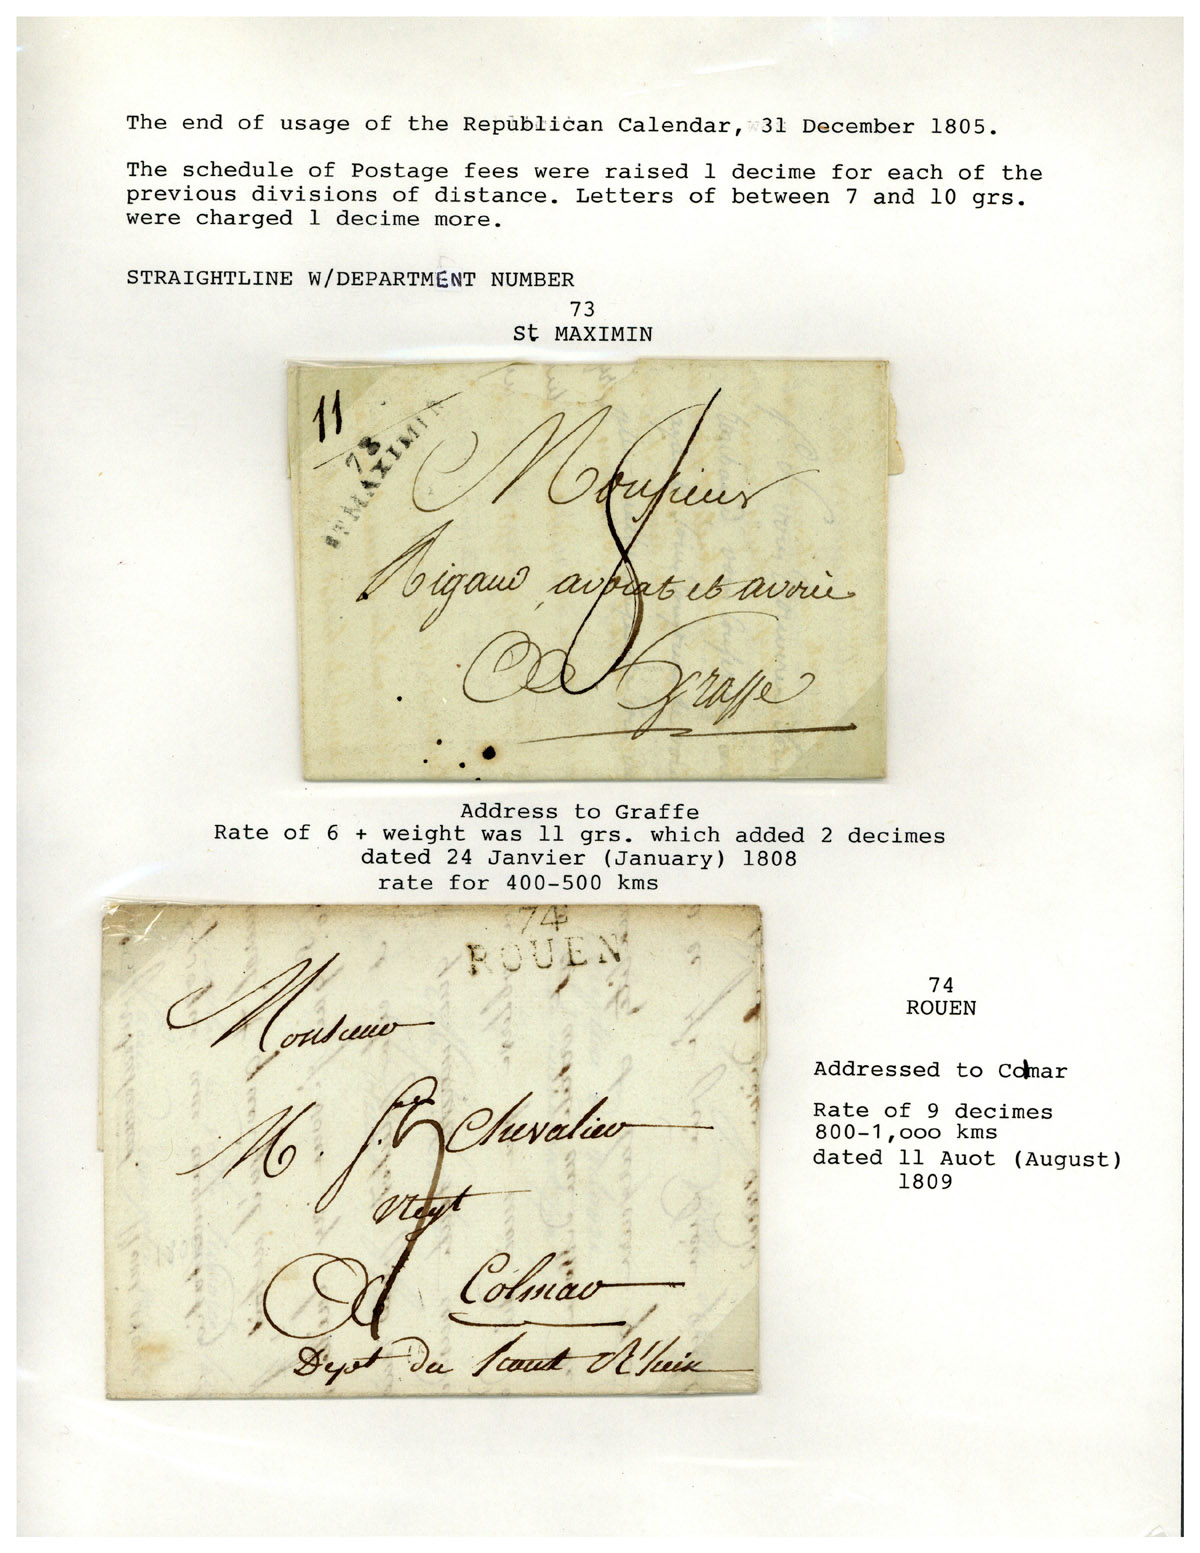 The end of usage of the Republican Calendar, 31 December 1805.
The schedule of Postage fees were raised 1 decime for each of the
previous divisions of distance. Letters of between 7 and 10 grs.
were charged 1 decime more.
STRAIGHTLINE W/DEPARTMENT NUMBER
73
St MAXIMIN
11
73
STMAXIMIN
8
Monsieur
Rigaud avocat et avoué
A Grasse
Address to Graffe
Rate of 6 + weight was 11 grs. which added 2 decimes
dated 24 Janvier (January) 1808
rate for 400-500 kms
74
ROUEN
Monsieur
M. Chevalier
A Colmar
Dept du haut Rhin
74
ROUEN
Addressed to Colmar
Rate of 9 decimes
800-1,ooo kms
dated 11 Auot (August)
1809